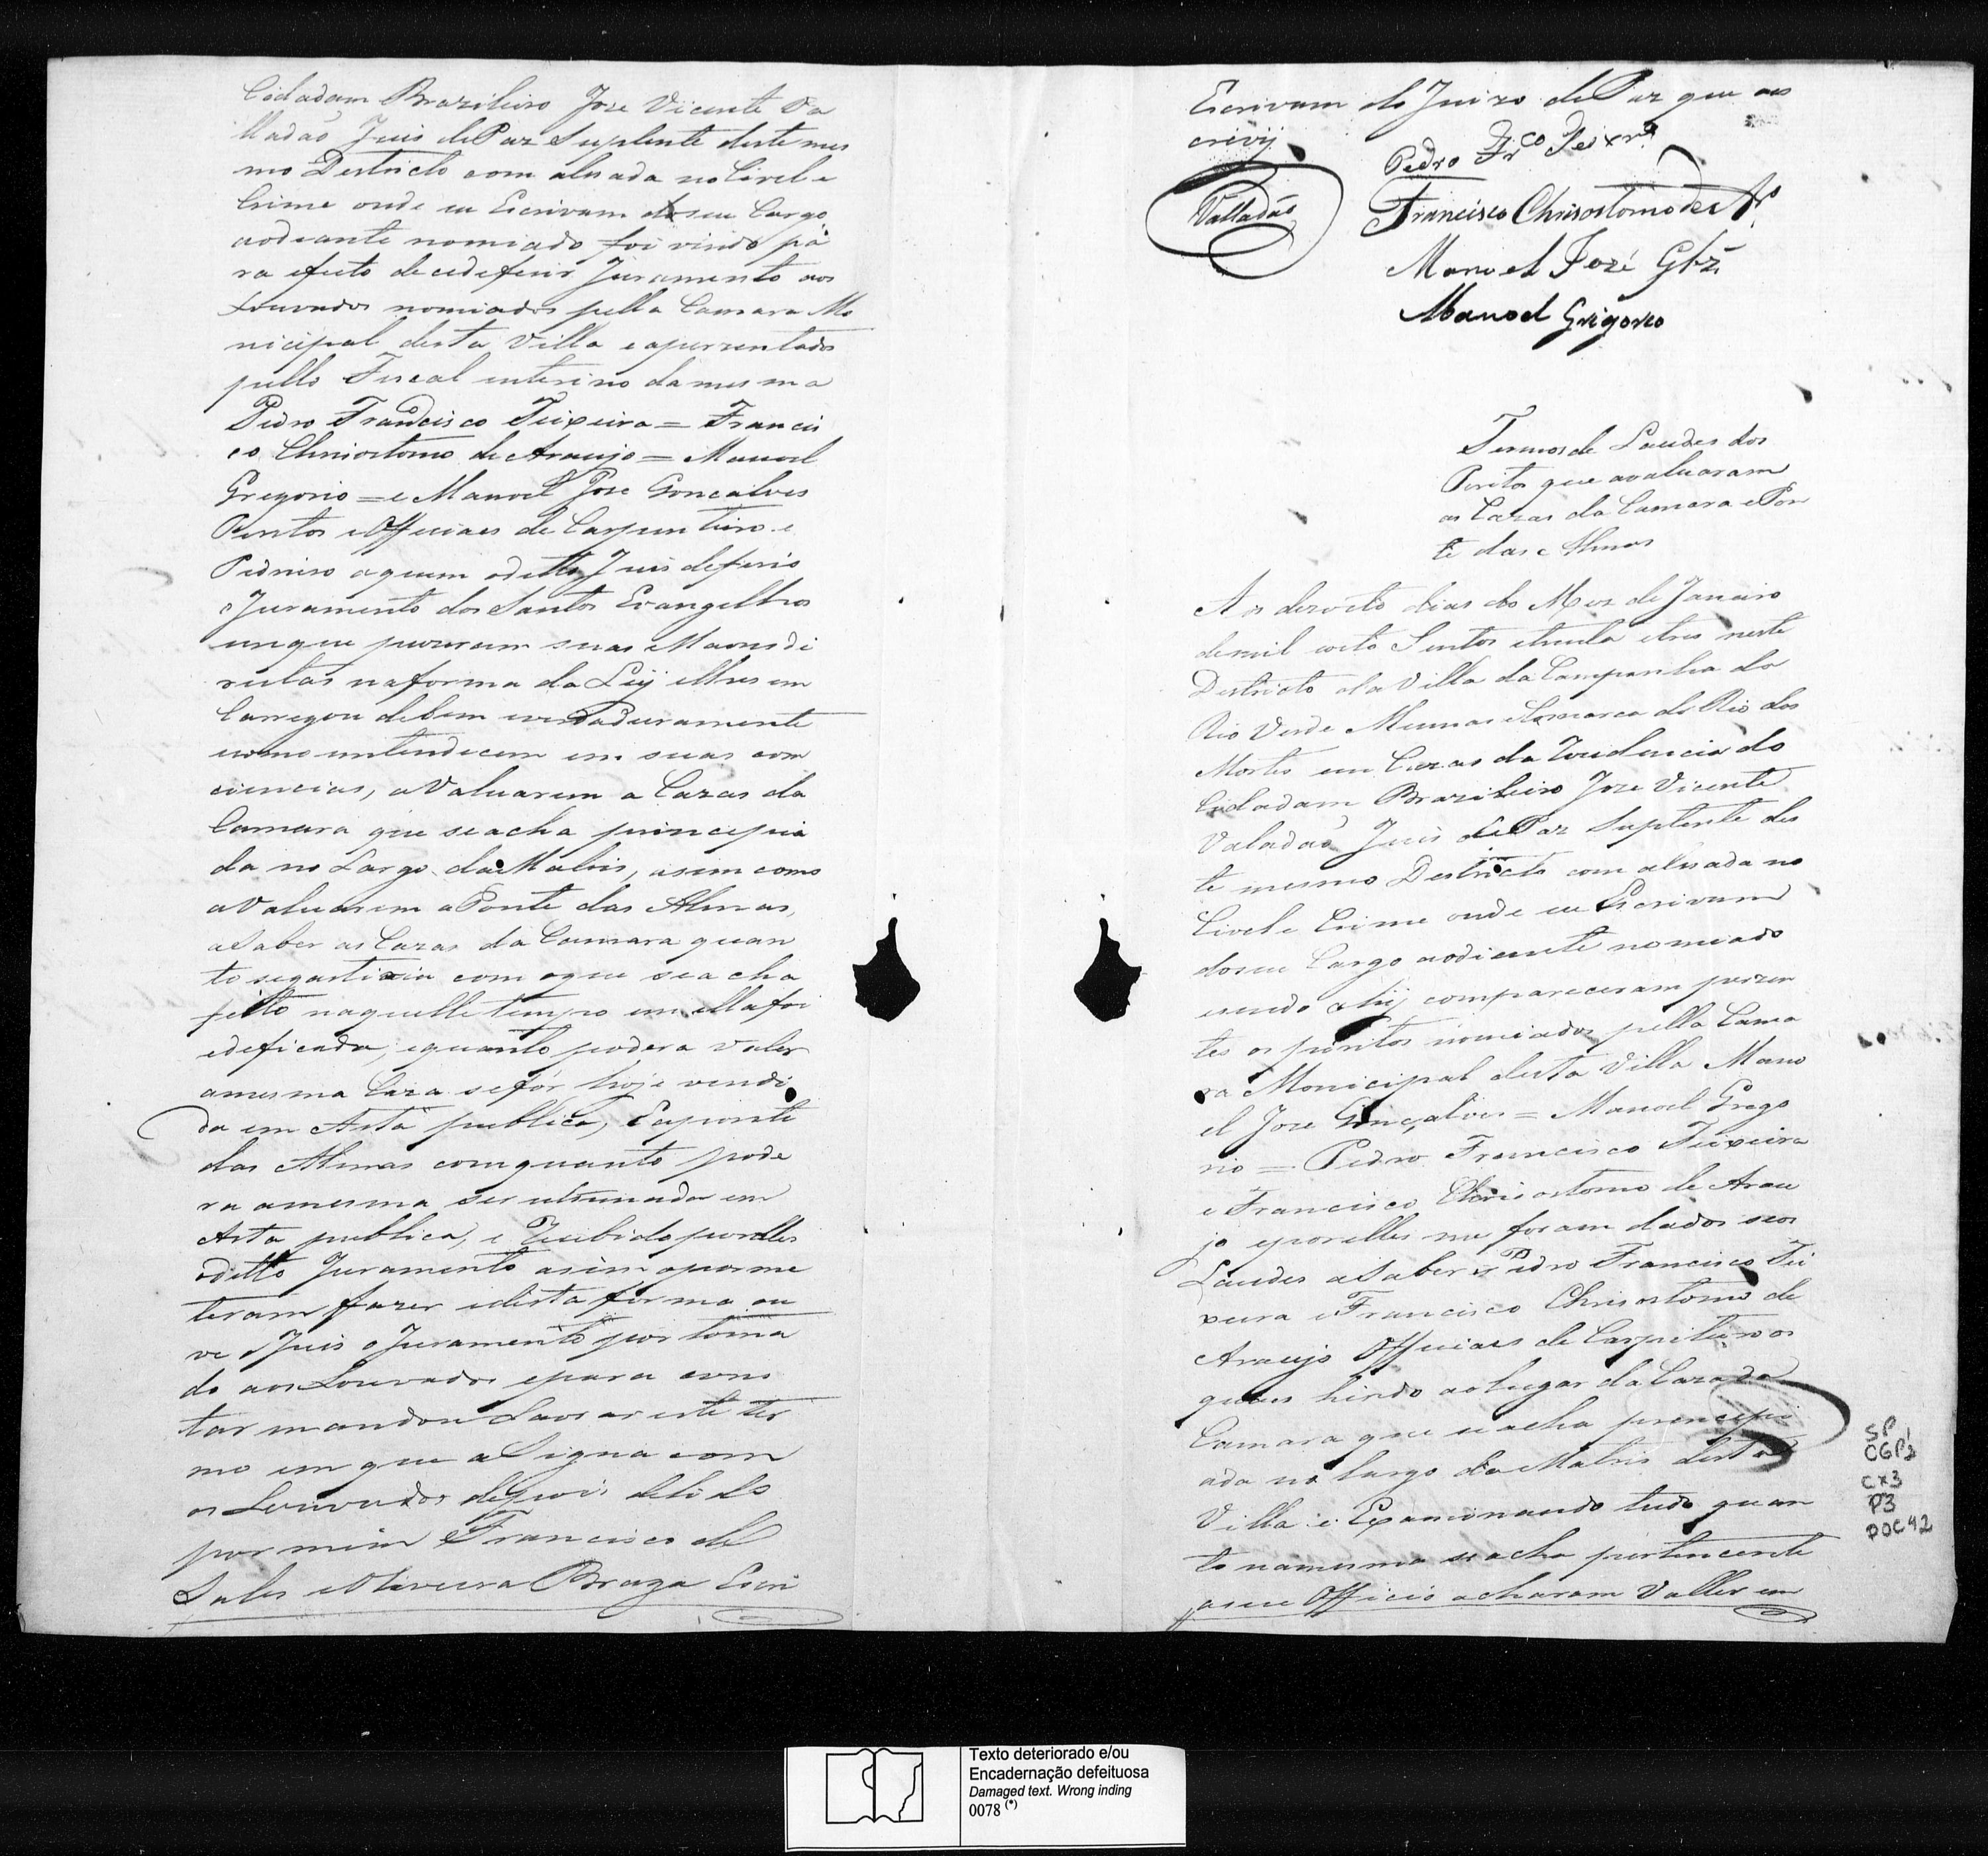 Cidadam Brazileiro Joze Vicente Va
lladão Juis de Paz Suplente deste mes
mo Destricto com alsada no Civel e
Crime onde eu Escrivam do seu Cargo
aodeante nomiado foi vindo pa
ra efeito de cedeferir Juramento aos
Louvados nomiados pella Camara Mo
nicipal desta Villa e aperzentados
pello Fiscal enterino da mesma
Pedro Francisco Teixeira = Francis
co Chrisostomo de Araujo = Manoel
Gregorio = e Manoel Joze Goncalves
Peritos e Officiaes de Carpinteiro e
Pedreiro a quem o ditto Juis deferio
o Juramento dos Santos Evangelhos
em que puzeram suas Maons di
reitas na forma da Ley e lhes em
Carregou de bem e verdadeiramente
e como entendecem em suas con
ciencias, aValuarem a Cazas da
Camara que se acha principia
da no Largo da Matris, asim como
aValuarem a Ponte das Almas,
aSaber as Cazas da Camara quan
to se gastaria com o que se acha
feito naquelle tempo em ella foi
edeficada, e quanto podera valer
a mesma Caza se fôr hoje vendi
da em Asta publica, E a ponte
das Almas com quanto pode
ra a mesma ser rematada em
Asta publica, e Recebido por elles
o ditto Juramento asim o prome
teram fazer e desta forma ou
ve o Juis o Juramento por toma
do aos Louvados e para cons
tar mandou Lavrar este ter
mo em que aSigna com
os Louvados depois de lido
por mim Francisco de
Sales e Oliveira Braga Escri
Escrivam do Juizo de Paz que os
crivij
Valladão
Pedro Frco Teixra
Francisco Chrisostomo de Aro
Manoel Jozé Glz
Manoel Grigorio
Termos de Laudes dos
Peritos que avaluaram
as Cazas da Camara e Pon
te das Almas
Aos dezoito dias do Mez de Janeiro
de mil oito Sentos e trinta e tres neste
Destricto da Villa da Campanha do
Rio Verde Minas e Comarca do Rio das
Mortes em Cazas da Rezidencia do
Cidadam Brazileiro Joze Vicente
Valadão Juis de Paz Suplente des
te mesmo Destricto com alsada no
Civel e Crime onde eu Escrivam
do seu Cargo aodiante nomeado
e sendo ahij compareceram perzen
tes os peritos nomiados pella Cama
ra Monicipal desta Villa Mano
el Joze Gonçalves = Manoel Grego
rio = Pedro Francisco Teixeira
e Francisco Chrisostomo de Arau
jo e por elles me foram dados seos
Laudes aSaber Pedro Francisco Tei
xeira e Francisco Chrisostomo de
Araujo Officiaes de Carpiteiro os
quaes hindo ao lugar da Caza da
Camara que se acha princepi
ada no largo da Matris desta
Villa e Examinando tudo quan
to na mesma se acha pertencente
a seu Officio acharam Valler em
SP
CGP1
CX3
P3
DOC42
Texto deteriorado e/ou
Encadernação defeituosa
Damaged text. Wrong inding
0078 (*)